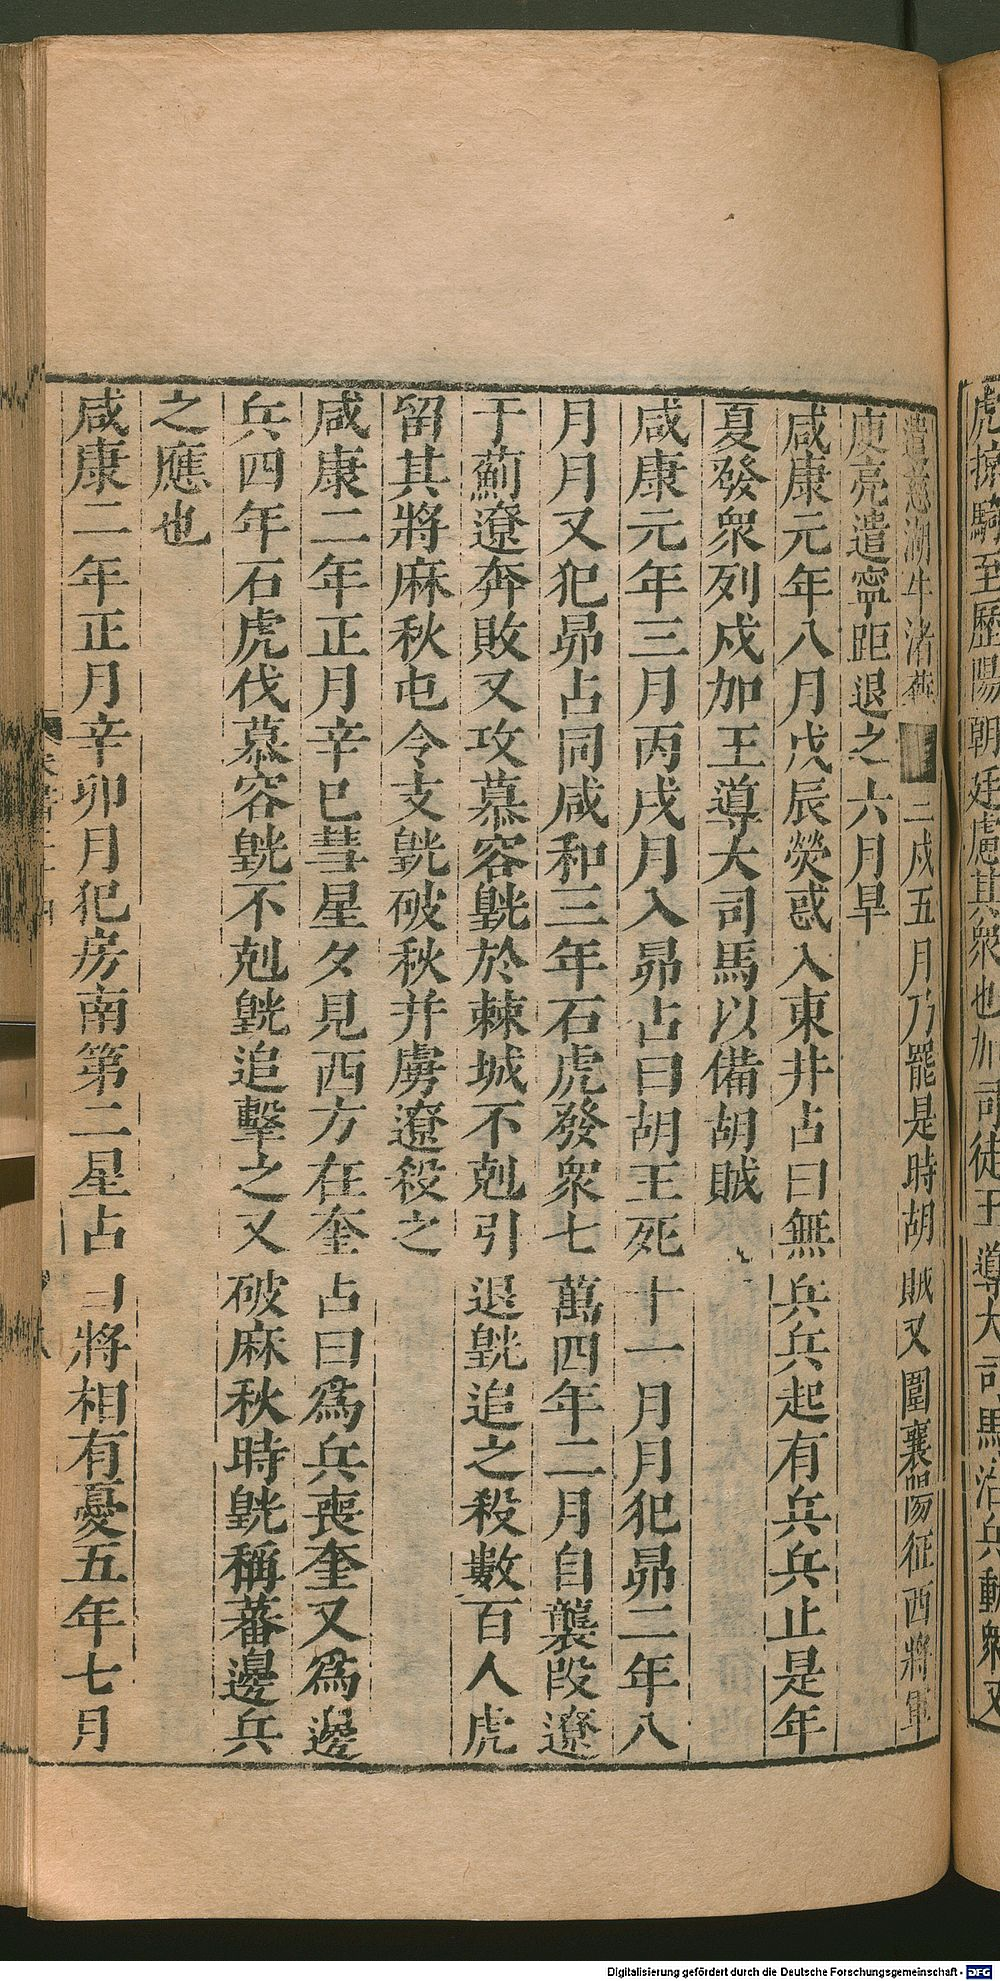 虎掠騎至歷陽朝廷慮其衆也加司徒王導大司馬治兵動衆又
遣慈湖牛渚蕪二戍五月乃罷是時胡賊又圍襄陽征西將軍
庾亮遣寧距退之六月旱
咸康元年八月戊辰熒惑入東井占曰無兵兵起有兵兵止是年
夏發衆列戍加王導大司馬以備胡賊
咸康元年三月丙戌月入昴占曰胡王死十一月月犯昴二年八
月月又犯昴占同咸和三年石虎發衆七萬四年二月自襲段遼
于薊遼奔敗又攻慕容皝於棘城不剋引退皝追之殺數百人虎
留其將麻秋屯令支皝破秋并虜遼殺之
咸康二年正月辛巳彗星夕見西方在奎占曰爲兵喪奎又爲邊
兵四年石虎伐慕容皝不剋皝追擊之又破麻秋時皝稱蕃邊兵
之應也
咸康二年正月辛卯月犯房南第二星占曰將相有憂五年七月
Digitalisierung gefördert durch die Deutsche Forschungsgemeinschaft - DFG